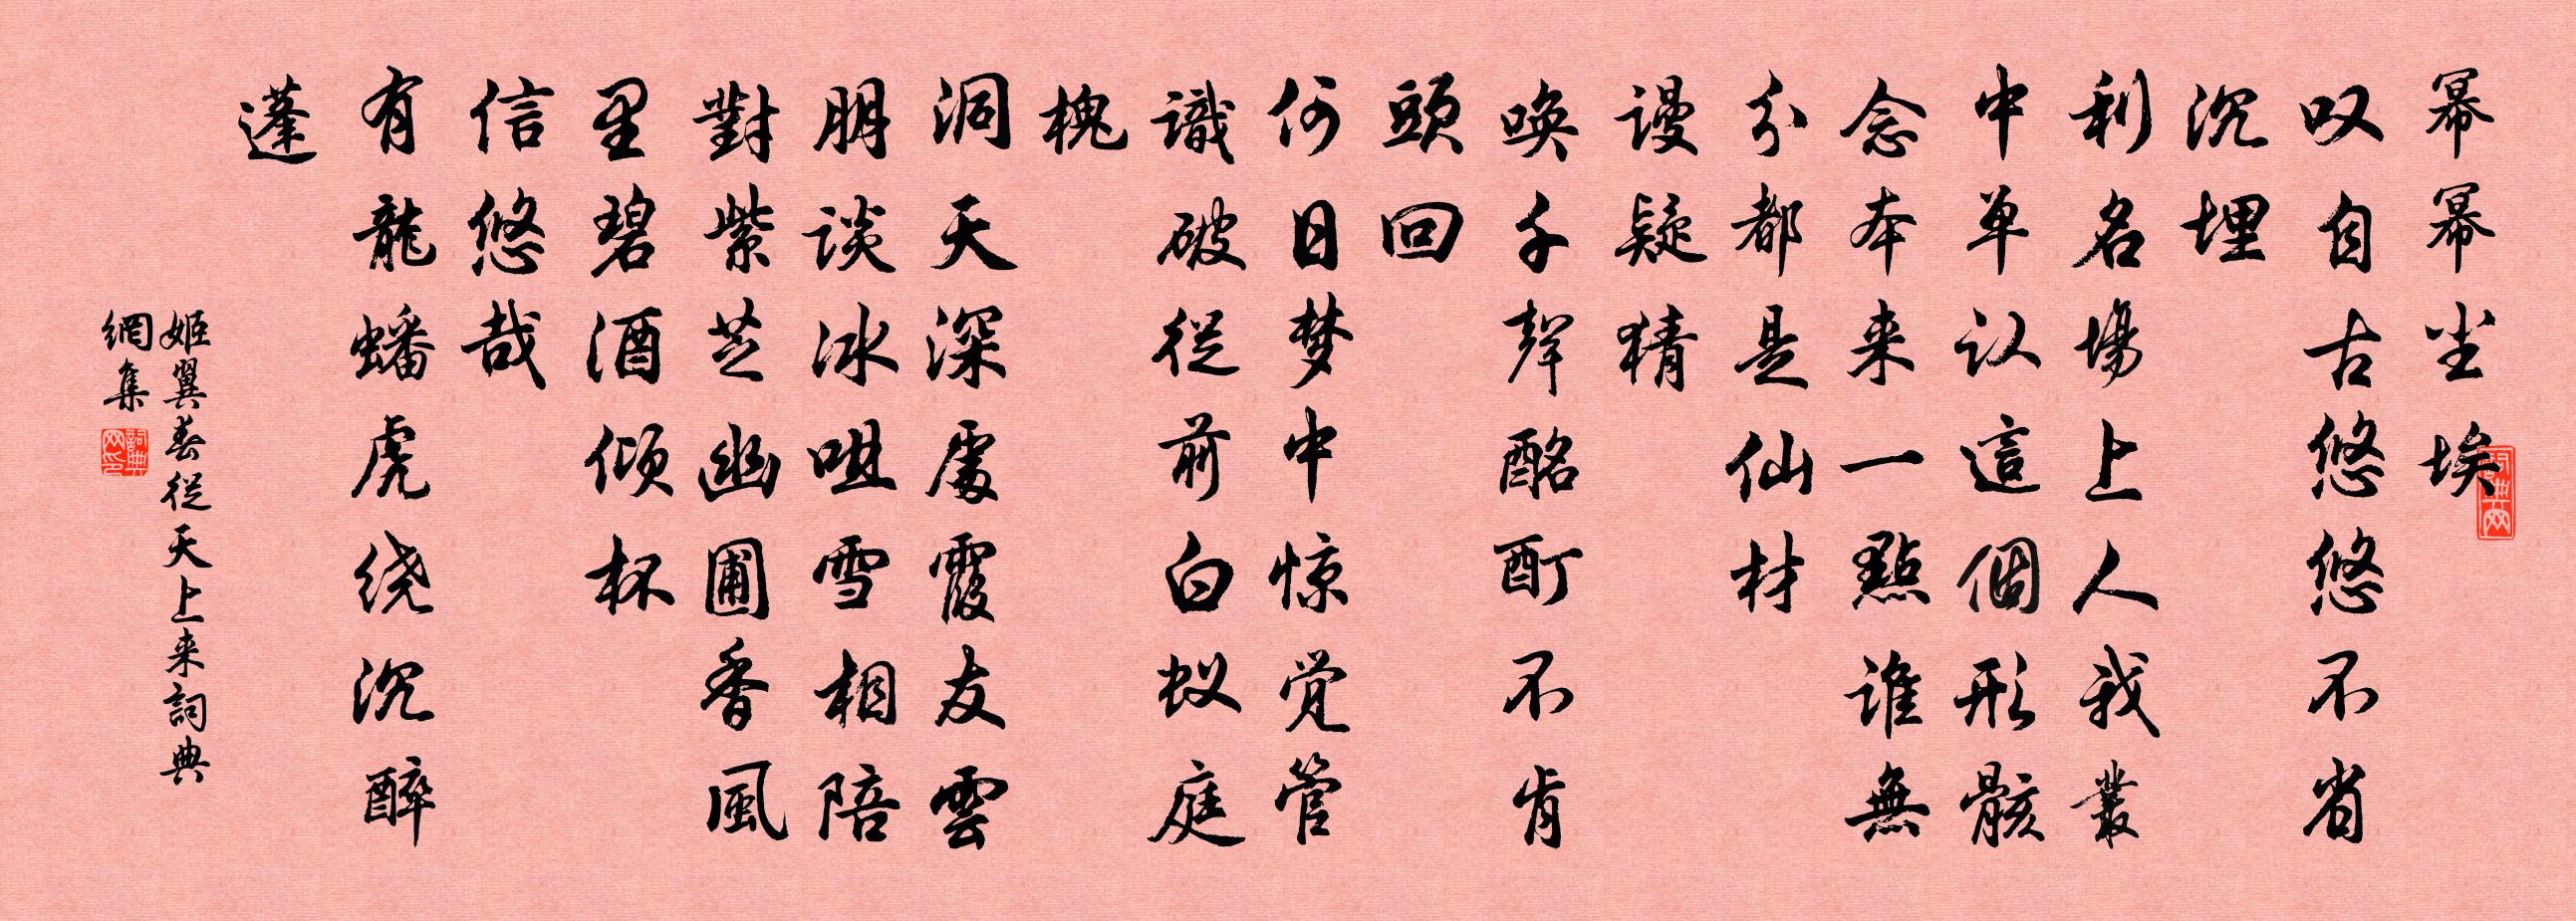 幂幂尘埃
叹自古悠悠不省
沉埋
利名場上人我叢
中单认這個形骸
念本来一點谁無
分都是仙材
谩疑猜
唤千聲酩酊不肯
頭回
何日梦中惊觉管
識破從前白蚁庭
槐
洞天深處霞友雲
朋谈冰咀雪相陪
對紫芝幽圃香風
里碧酒倾杯
信悠哉
有龍蟠虎绕沉醉
蓬
姬翼春從天上来詞典
網集
詞典网
詞典网印